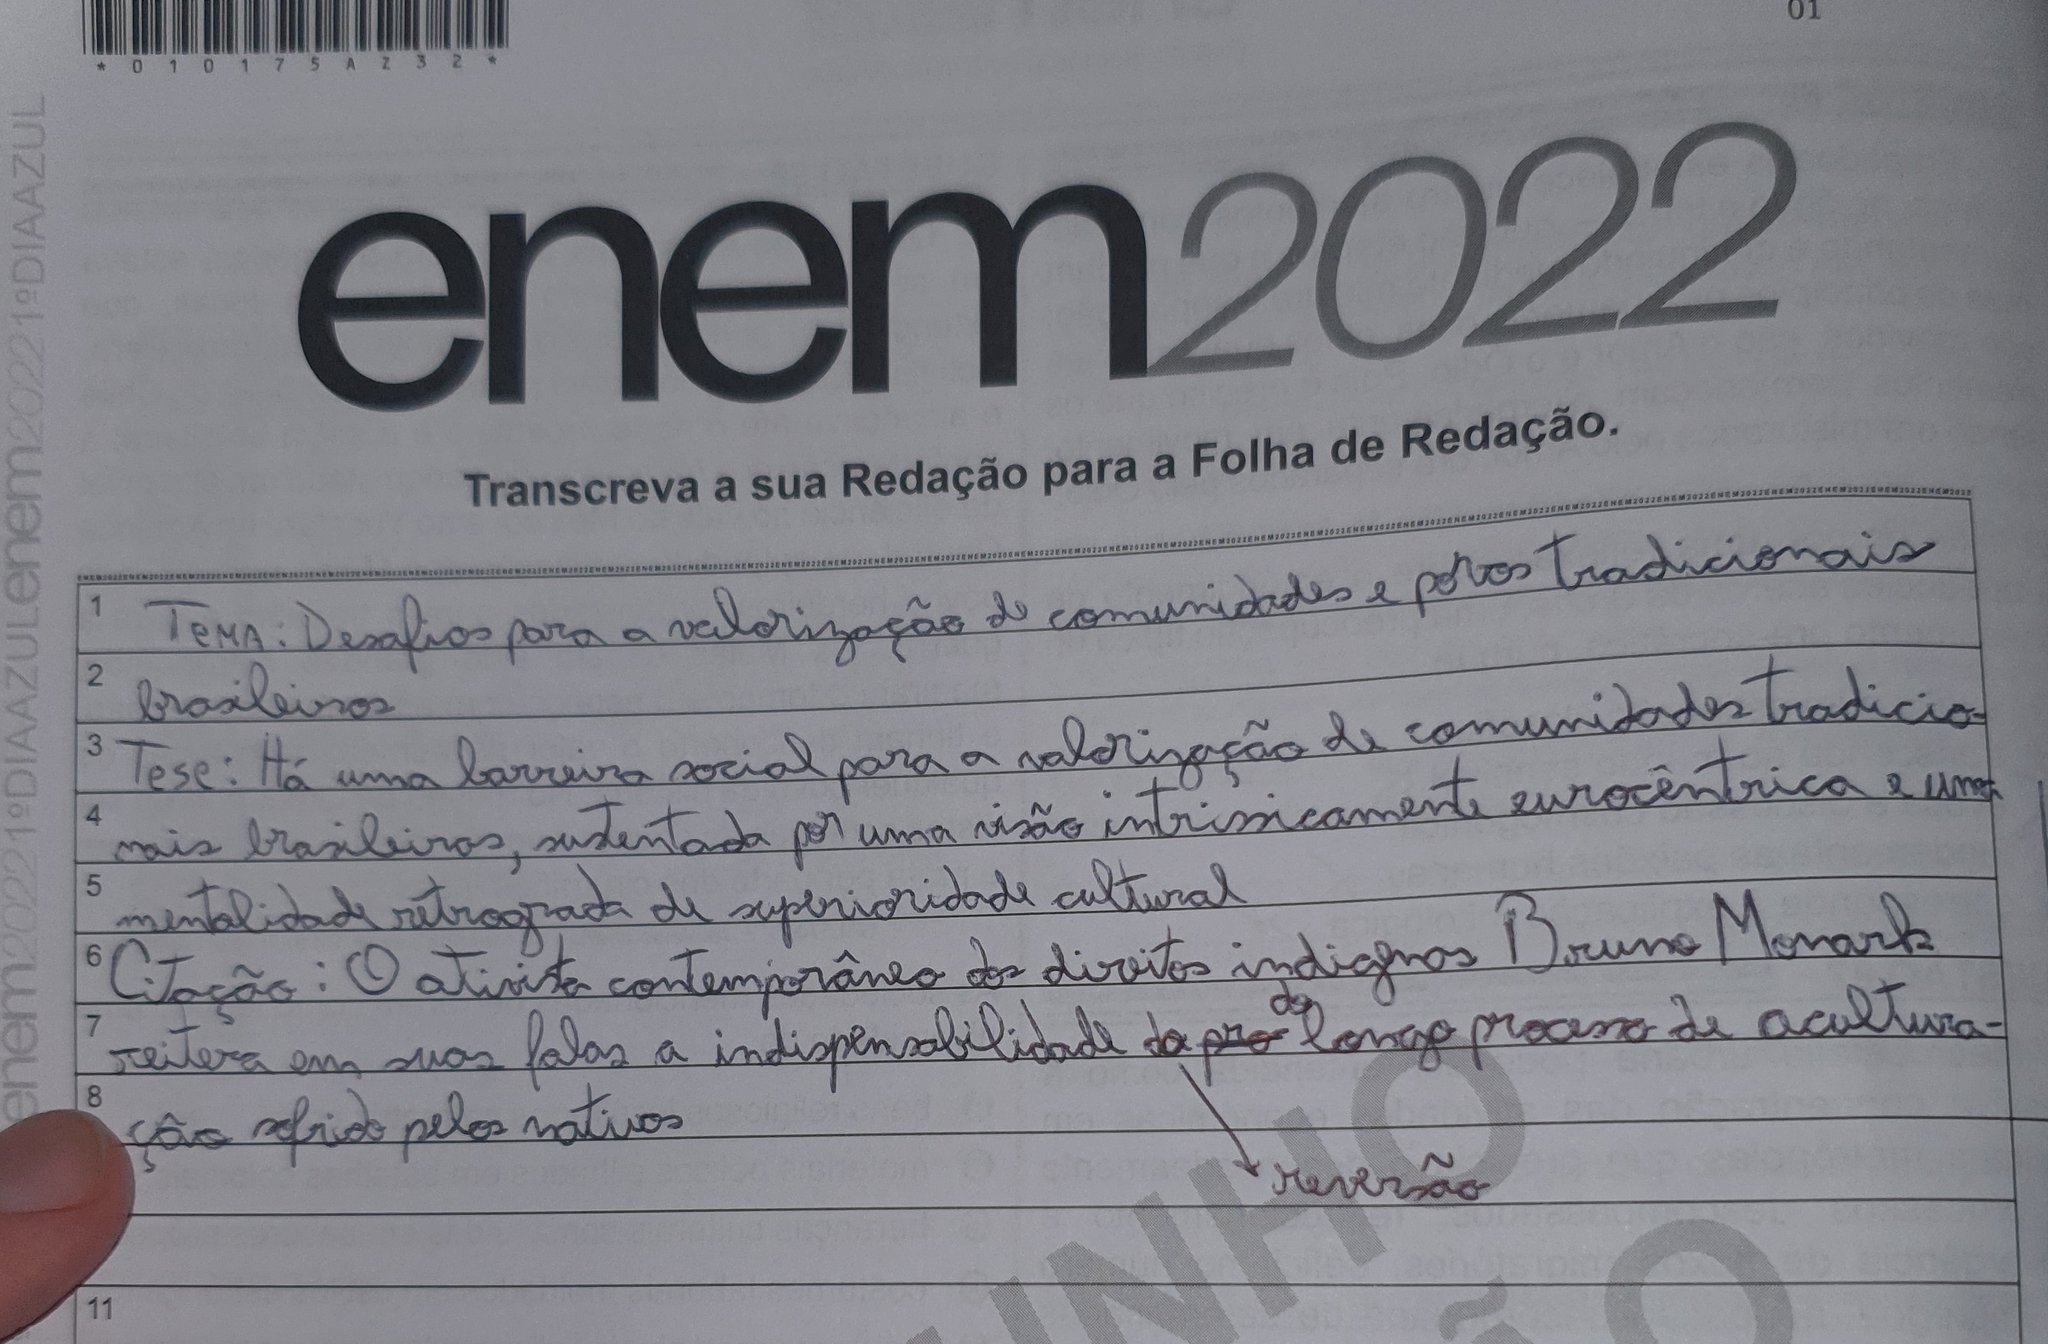 01
*010175AZ32*
enem2022
Transcreva a sua Redação para a Folha de Redação.
1 Tema: Desafios para a valorização de comunidades e povos tradicionais
2 brasileiros
3 Tese: Há uma barreira social para a valorização de comunidades tradicio-
4 nais brasileiros, sustentada por uma visão intrinsicamente eurocêntrica e uma
5 mentalidade retrograda de superioridade cultural
6 Citação: O ativista contemporâneo dos direitos indignos Bruno Monark
do
7 reitera em suas falas a indispensabilidade da pro longo processo de acultura-
8 ção sofrido pelos nativos
reversão
11
enem20221ºDIAAZULenem20221ºDIAAZUL